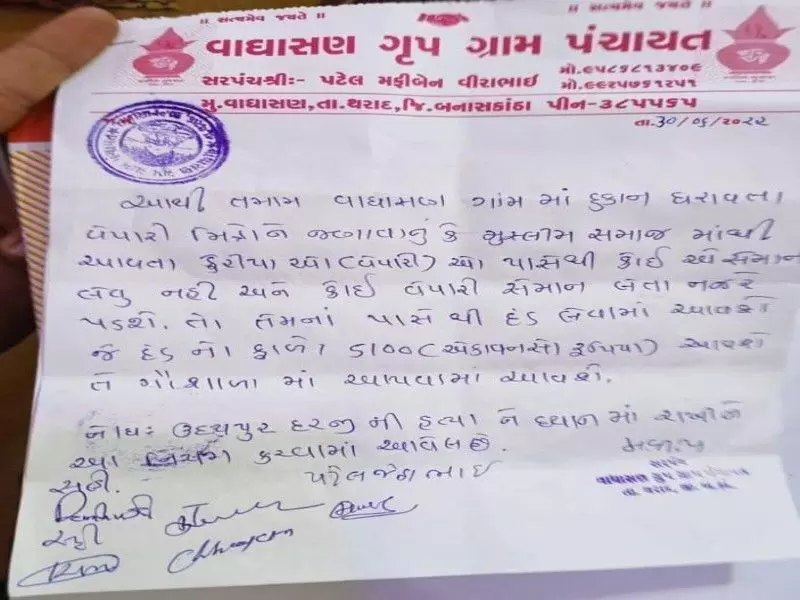 ॥ સત્યમેવ જયતે ॥
॥ સત્યમેવ જયતે ॥
વાઘાસણ ગૃપ ગ્રામ પંચાયત
સરપંચશ્રી:- પટેલ મફીબેન વીરાભાઈ
મો.૯૫૮૬૮૧૩૪૦૬
મો.૯૯૨૫૭૬૧૨૫૧
મુ.વાઘાસણ,તા.થરાદ,જિ.બનાસકાંઠા પીન-૩૮૫૫૬૫
તા.૩૦/૦૬/૨૦૨૨
આથી તમામ વાઘાસણ ગામ માં દુકાન ધરાવતા
વેપારી મિત્રોને જણાવાનું કે મુસ્લીમ સમાજ માંથી
આવતા ફેરીયા ઓ (વેપારી) ઓ પાસેથી કોઈ એ સામાન
લેવુ નહી અને કોઈ વેપારી સામાન લેતા નજરે
પડશે. તો તેમનાં પાસે થી દંડ લેવામાં આવશે
જે દંડ નો ફાળો 5100 (એકાવનસો રૂપિયા) આવશે
તે ગૌશાળા માં આપવામાં આવશે.
નોધ: ઉદયપુર દરજી ની હત્યા ને ધ્યાન માં રાખીને
આ નિયમ કરવામાં આવેલ છે.
સહી.
પટેલ જેઠાભાઈ
સરપંચ
વાઘાસણ ગૃપ ગ્રામ પંચાયત
સહી